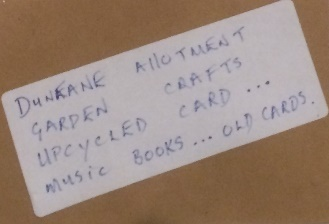 DUNEANE AllOTMENT
GARDEN CRAFTS
UPCYCLED CARD ...
music BOOKS ... OLD CARDS.